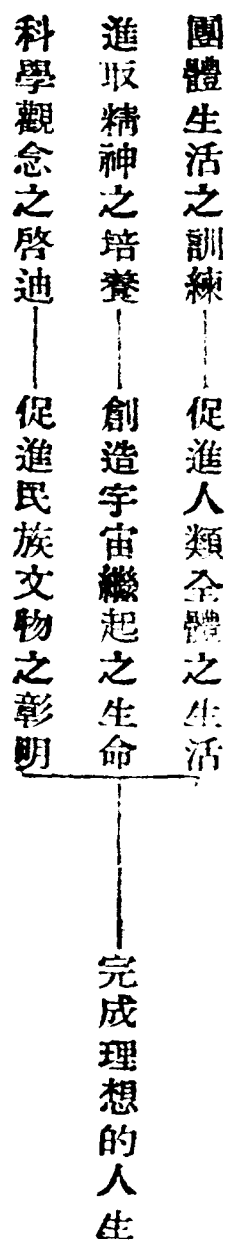 團體生活之訓練——促進人類全體之生活
進取精神之培養——創造宇宙繼起之生命
科學觀念之啓迪——促進民族文物之彰明
完成理想的人生